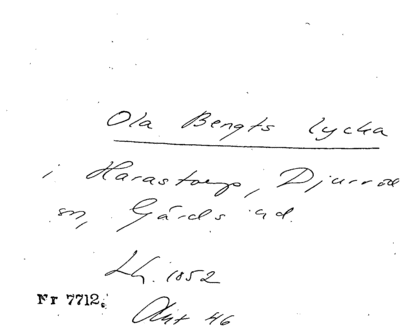 Ola Bengts lycka
i Harastorp, Djurröd
sn, Gärds hd.
Lh. 1852
Nr 7712.
Akt 46